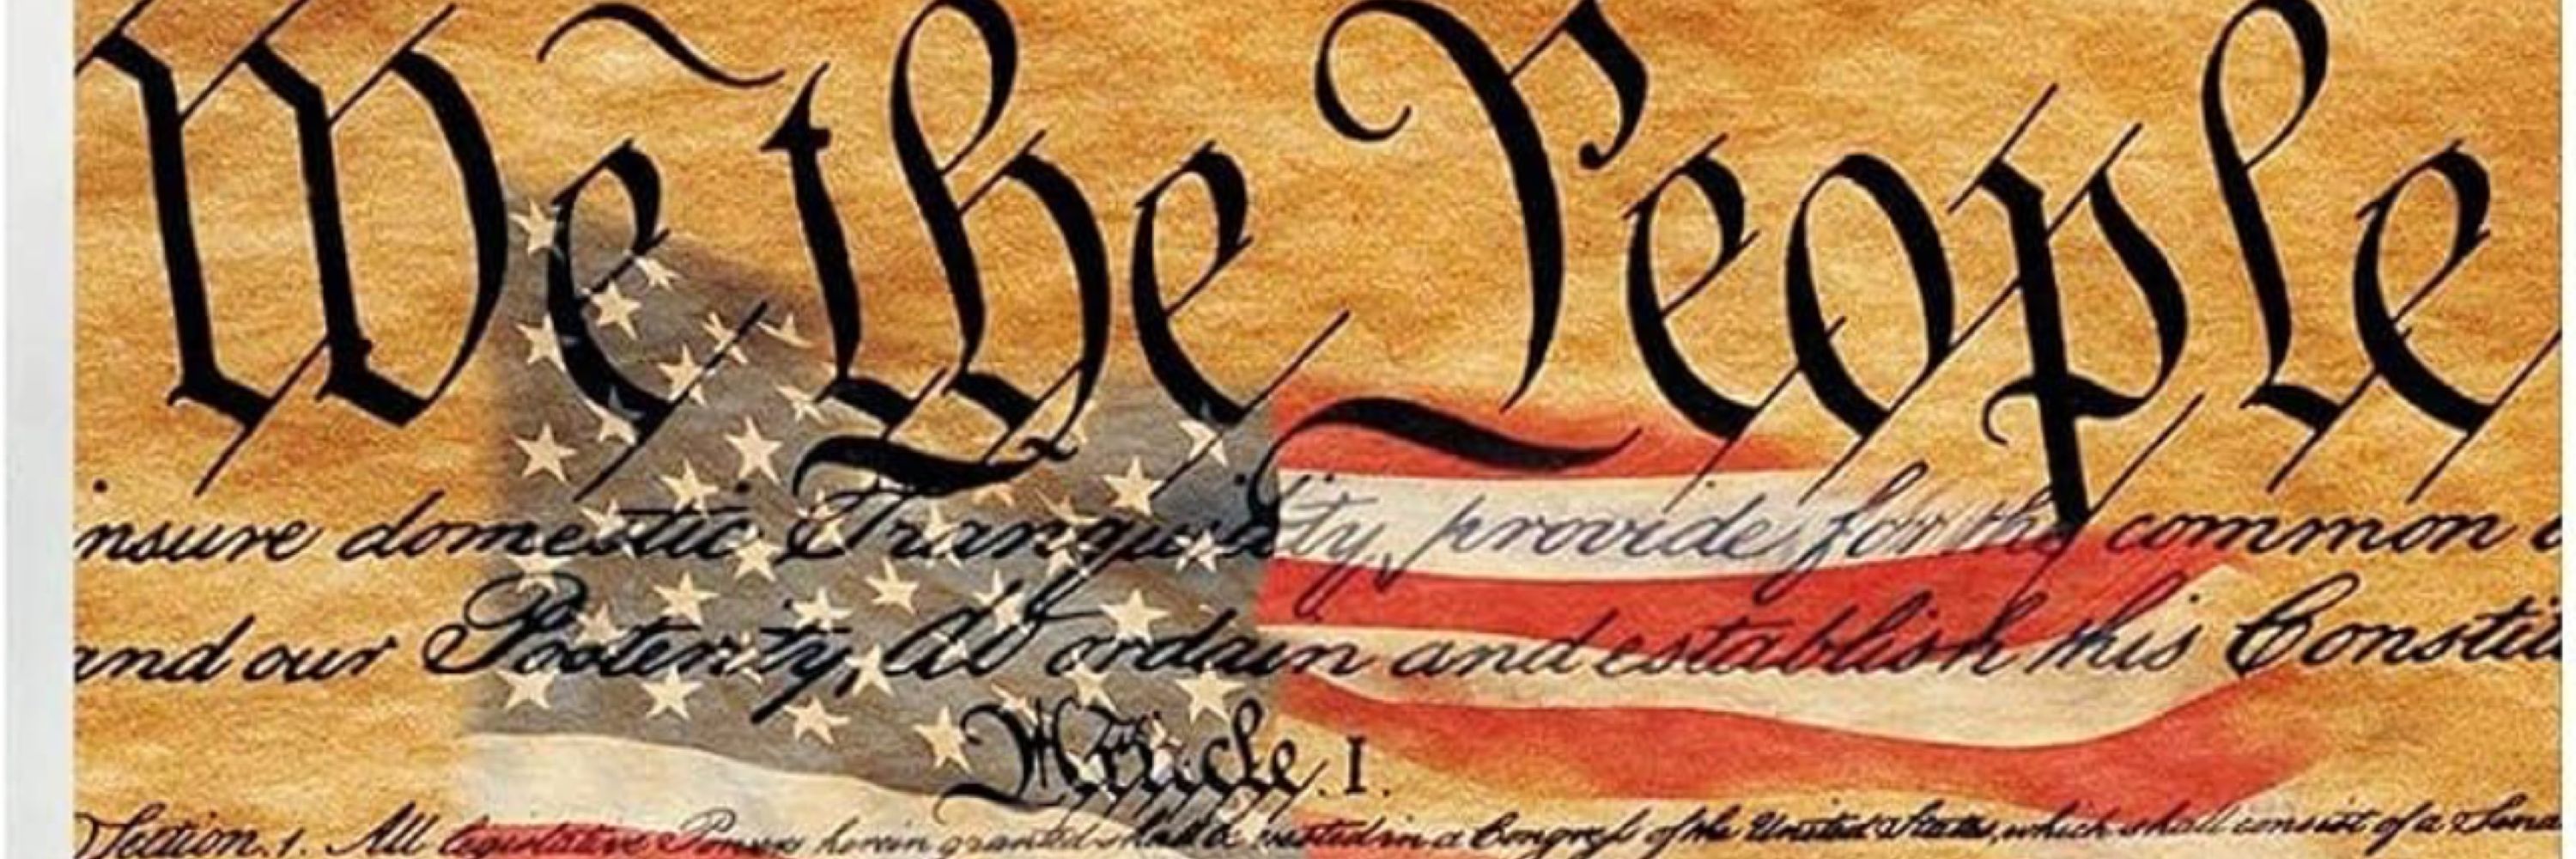 We the People
insure domestic Tranquility, provide for the common
and our Posterity, do ordain and establish this Constitu
Article. I.
Section. 1. All legislative Powers herein granted shall be vested in a Congress of the United States, which shall consist of a Sena